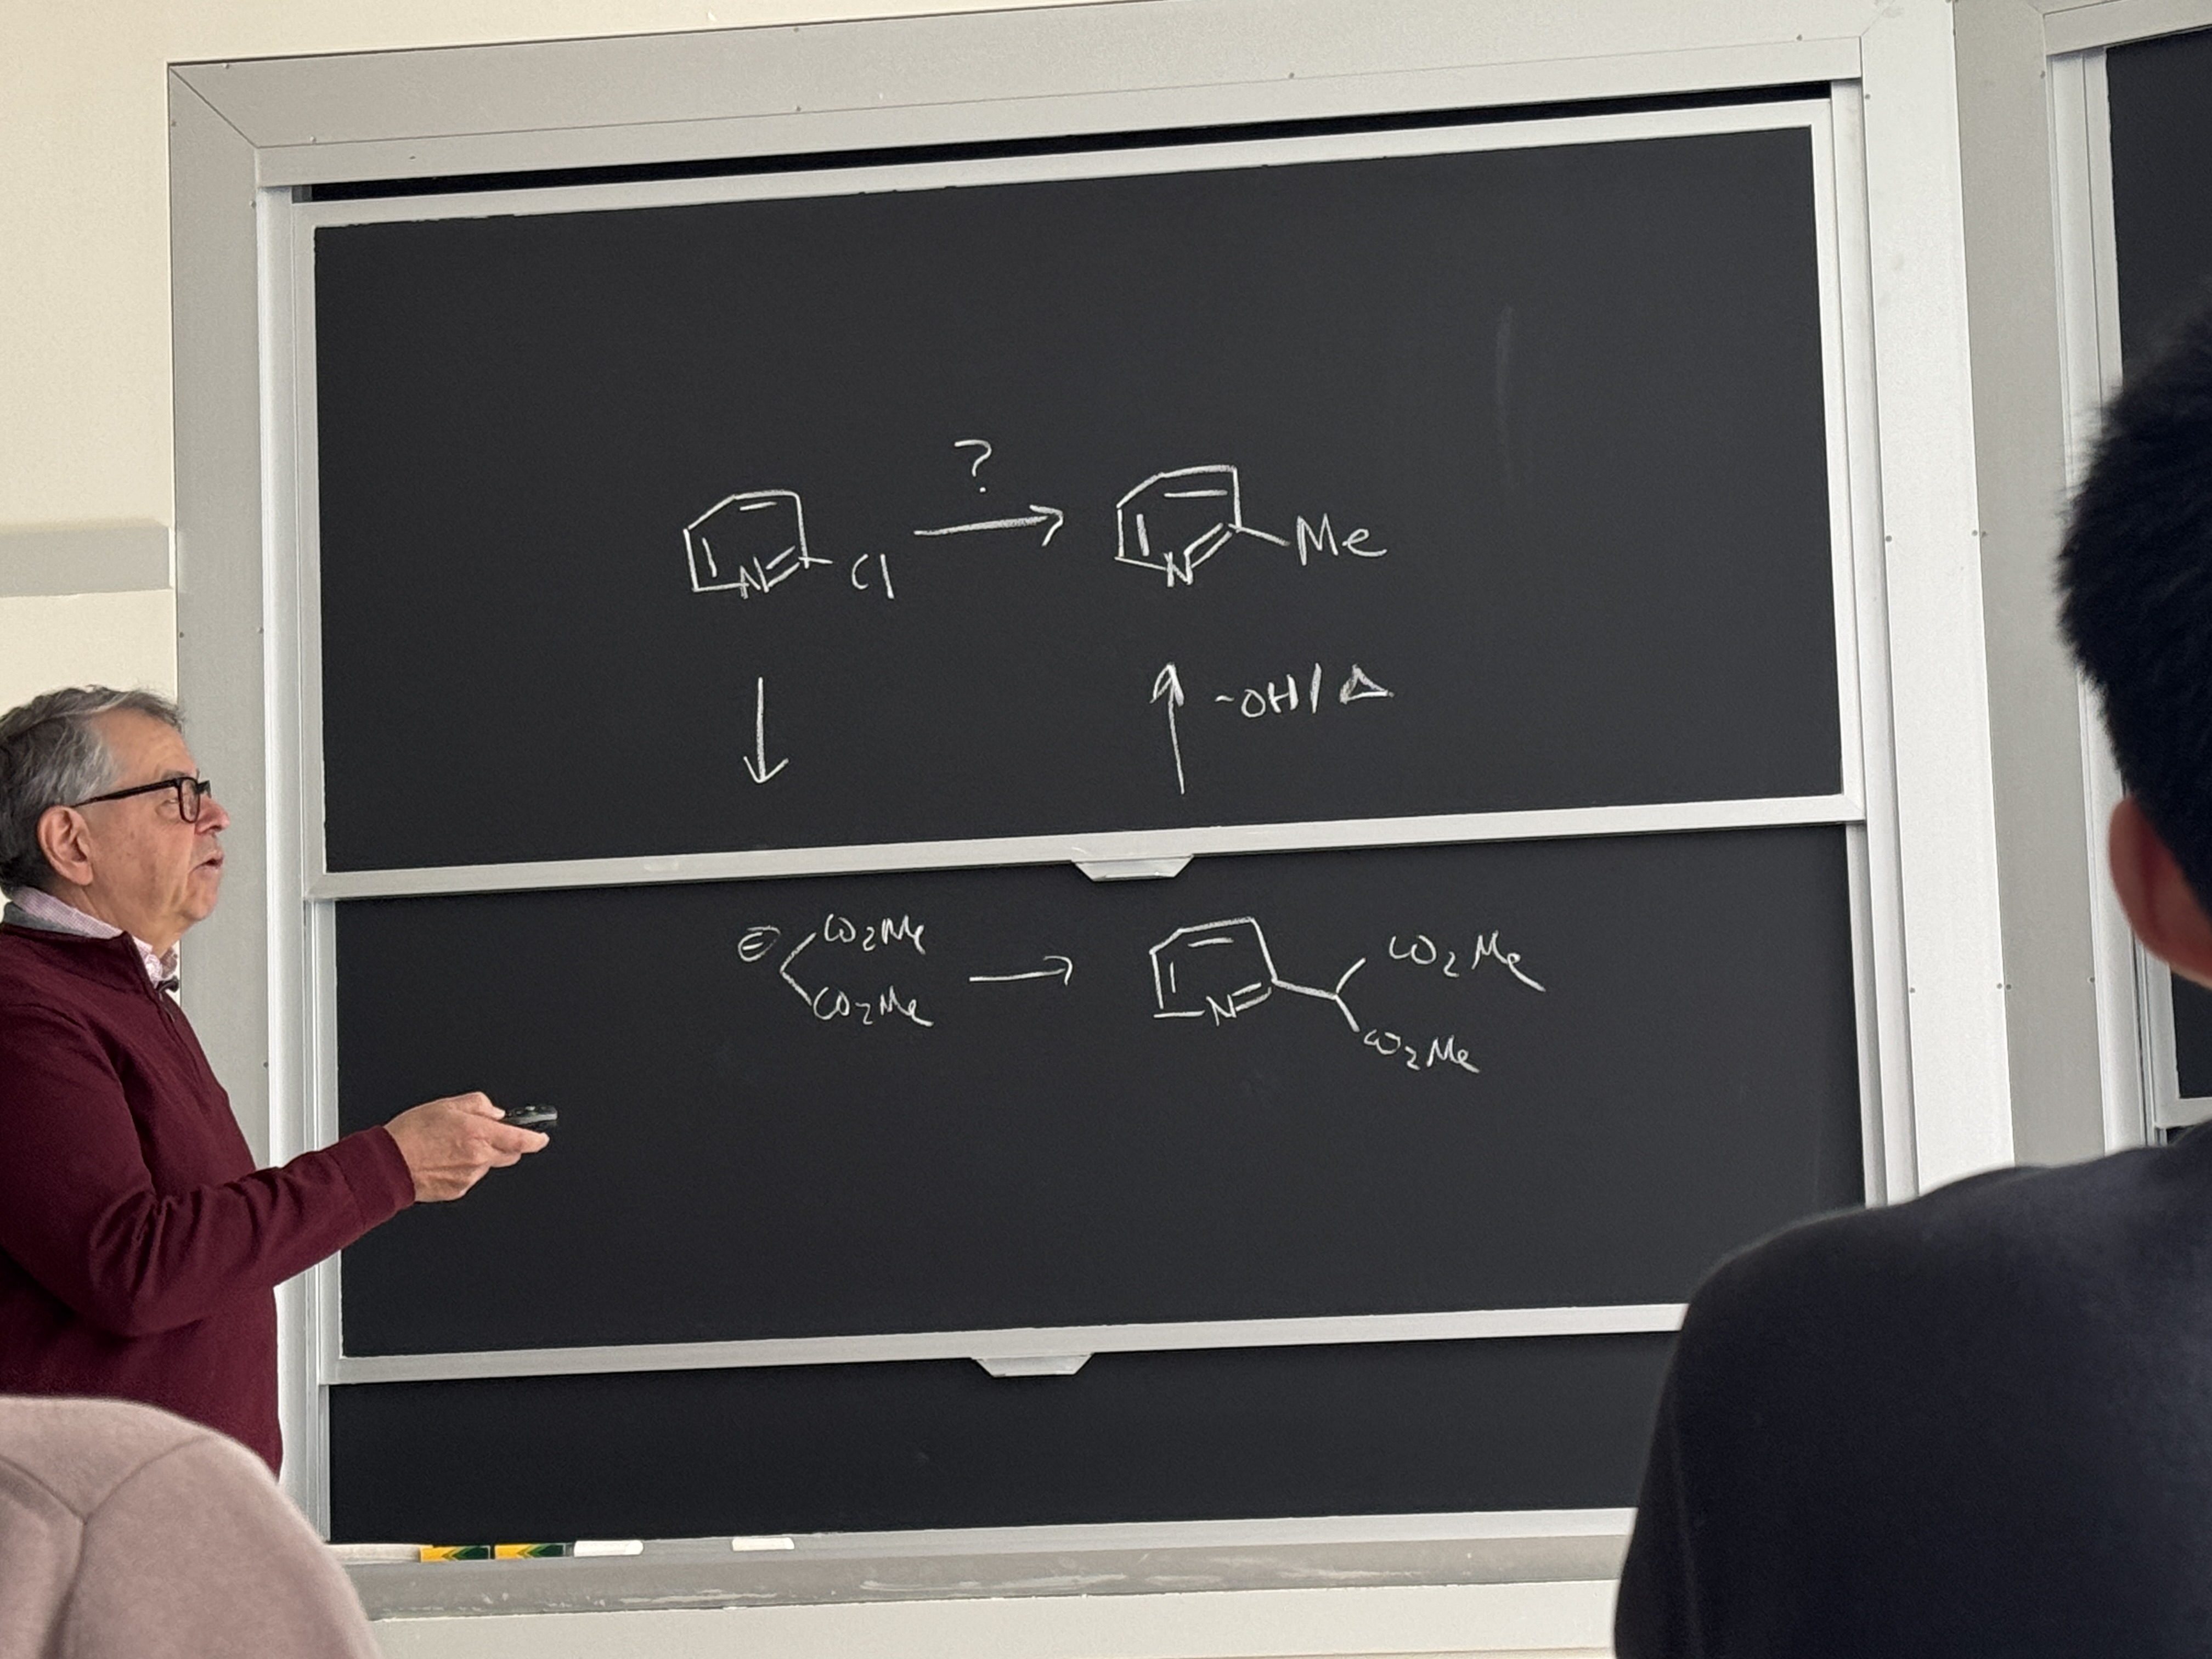 ?
N Cl
N Me
-OH/Δ
⊖ CO2Me
CO2Me
N CO2Me
CO2Me